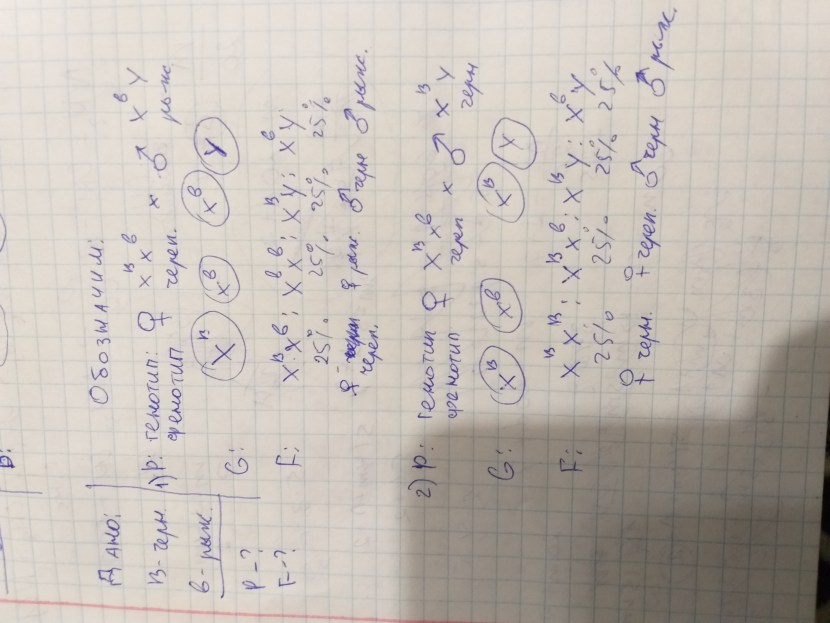 Дано:
B - черн
b - рыж.
P - ?
F - ?
Обозначим:
1) P: генотип: ♀ XᴮXᵇ × ♂ XᵇY
фенотип череп. рыж.
G: Xᴮ Xᵇ Xᵇ Y
F: XᴮXᵇ : XᵇXᵇ : XᴮY : XᵇY
25% 25% 25% 25%
♀ череп. ♀ рыж. ♂ черн ♂ рыж.
2) P: генотип ♀ XᴮXᵇ × ♂ XᴮY
фенотип череп черн
G: Xᴮ Xᵇ Xᴮ Y
F: XᴮXᴮ : XᴮXᵇ : XᴮY : XᵇY
25% 25% 25% 25%
♀ черн. ♀ череп. ♂ черн ♂ рыж.